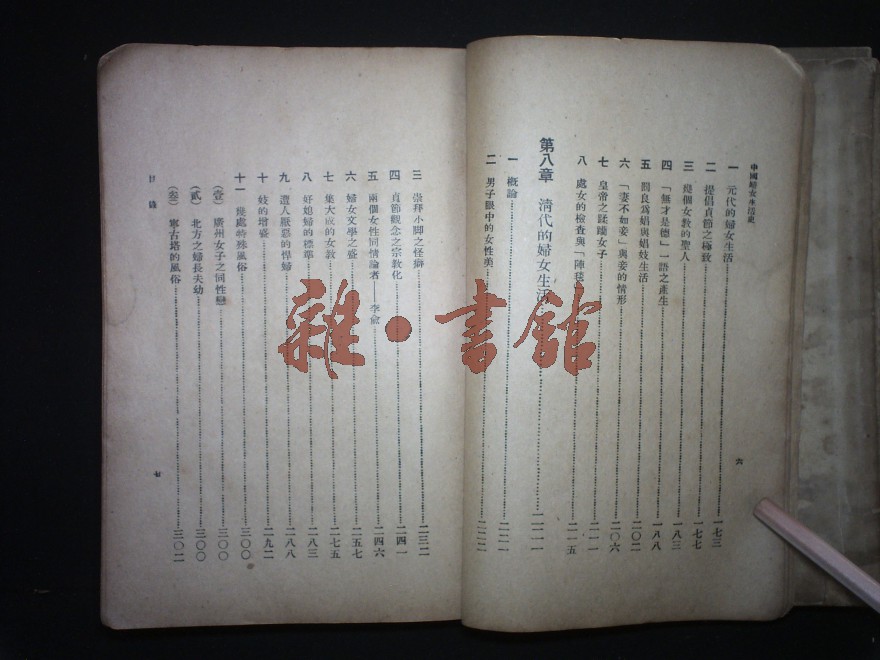 中國婦女生活史
一 元代的婦女生活 一七三
二 提倡貞節之極致 一七七
三 幾個女教的聖人 一八三
四 「無才是德」一語之產生 一八八
五 關良爲娼與娼妓生活 二〇二
六 「妻不如妾」與妾的情形 二〇六
七 皇帝之蹂躪女子 二一一
八 處女的檢查與「陣毯 二一五
第八章 清代的婦女生活
一 概論 二二一
二 男子眼中的女性美 二二二
六
三 崇拜小脚之怪癖 二三二
四 貞節觀念之宗教化 二四一
五 兩個女性同情論者 李俞 二四六
六 婦女文學之盛 二五七
七 集大成的女教 二七五
八 好媳婦的標準 二八三
九 遭人厭惡的悍婦 二八八
十 妓的增嫠 二九二
十一 幾處特殊風俗 三〇〇
(壹) 廣州女子之同性戀 三〇〇
(貳) 北方之婦長夫幼 三〇〇
(叁) 寧古塔的風俗 三〇二
目錄
七
雜·書館